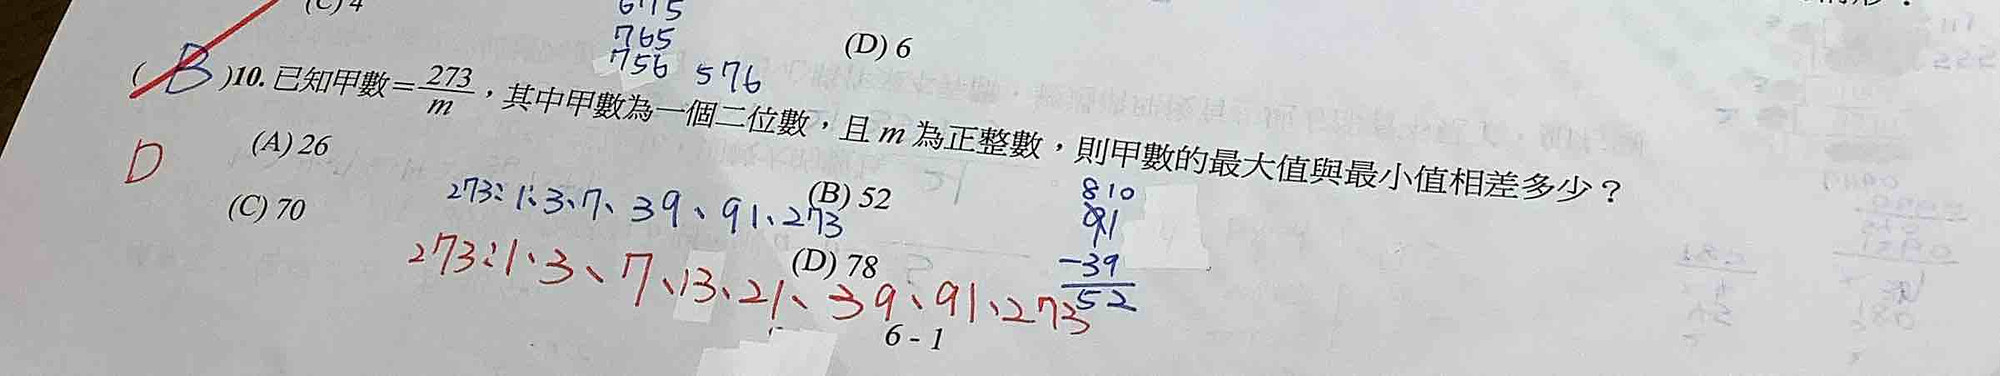 (C) 4
675
765
(D) 6
756 576
( B )10. 已知甲數=273/m，其中甲數為一個二位數，且 m 為正整數，則甲數的最大值與最小值相差多少？
D
(A) 26
(B) 52
273:1、3、7、39、91、273
810
91
-39
52
(C) 70
(D) 78
273:1、3、7、13、21、39、91、273
6 - 1